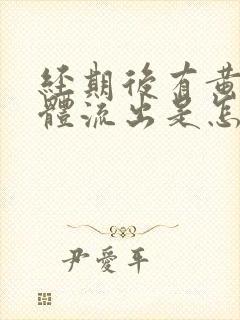 經期後有黃
體流出是怎
尹愛平